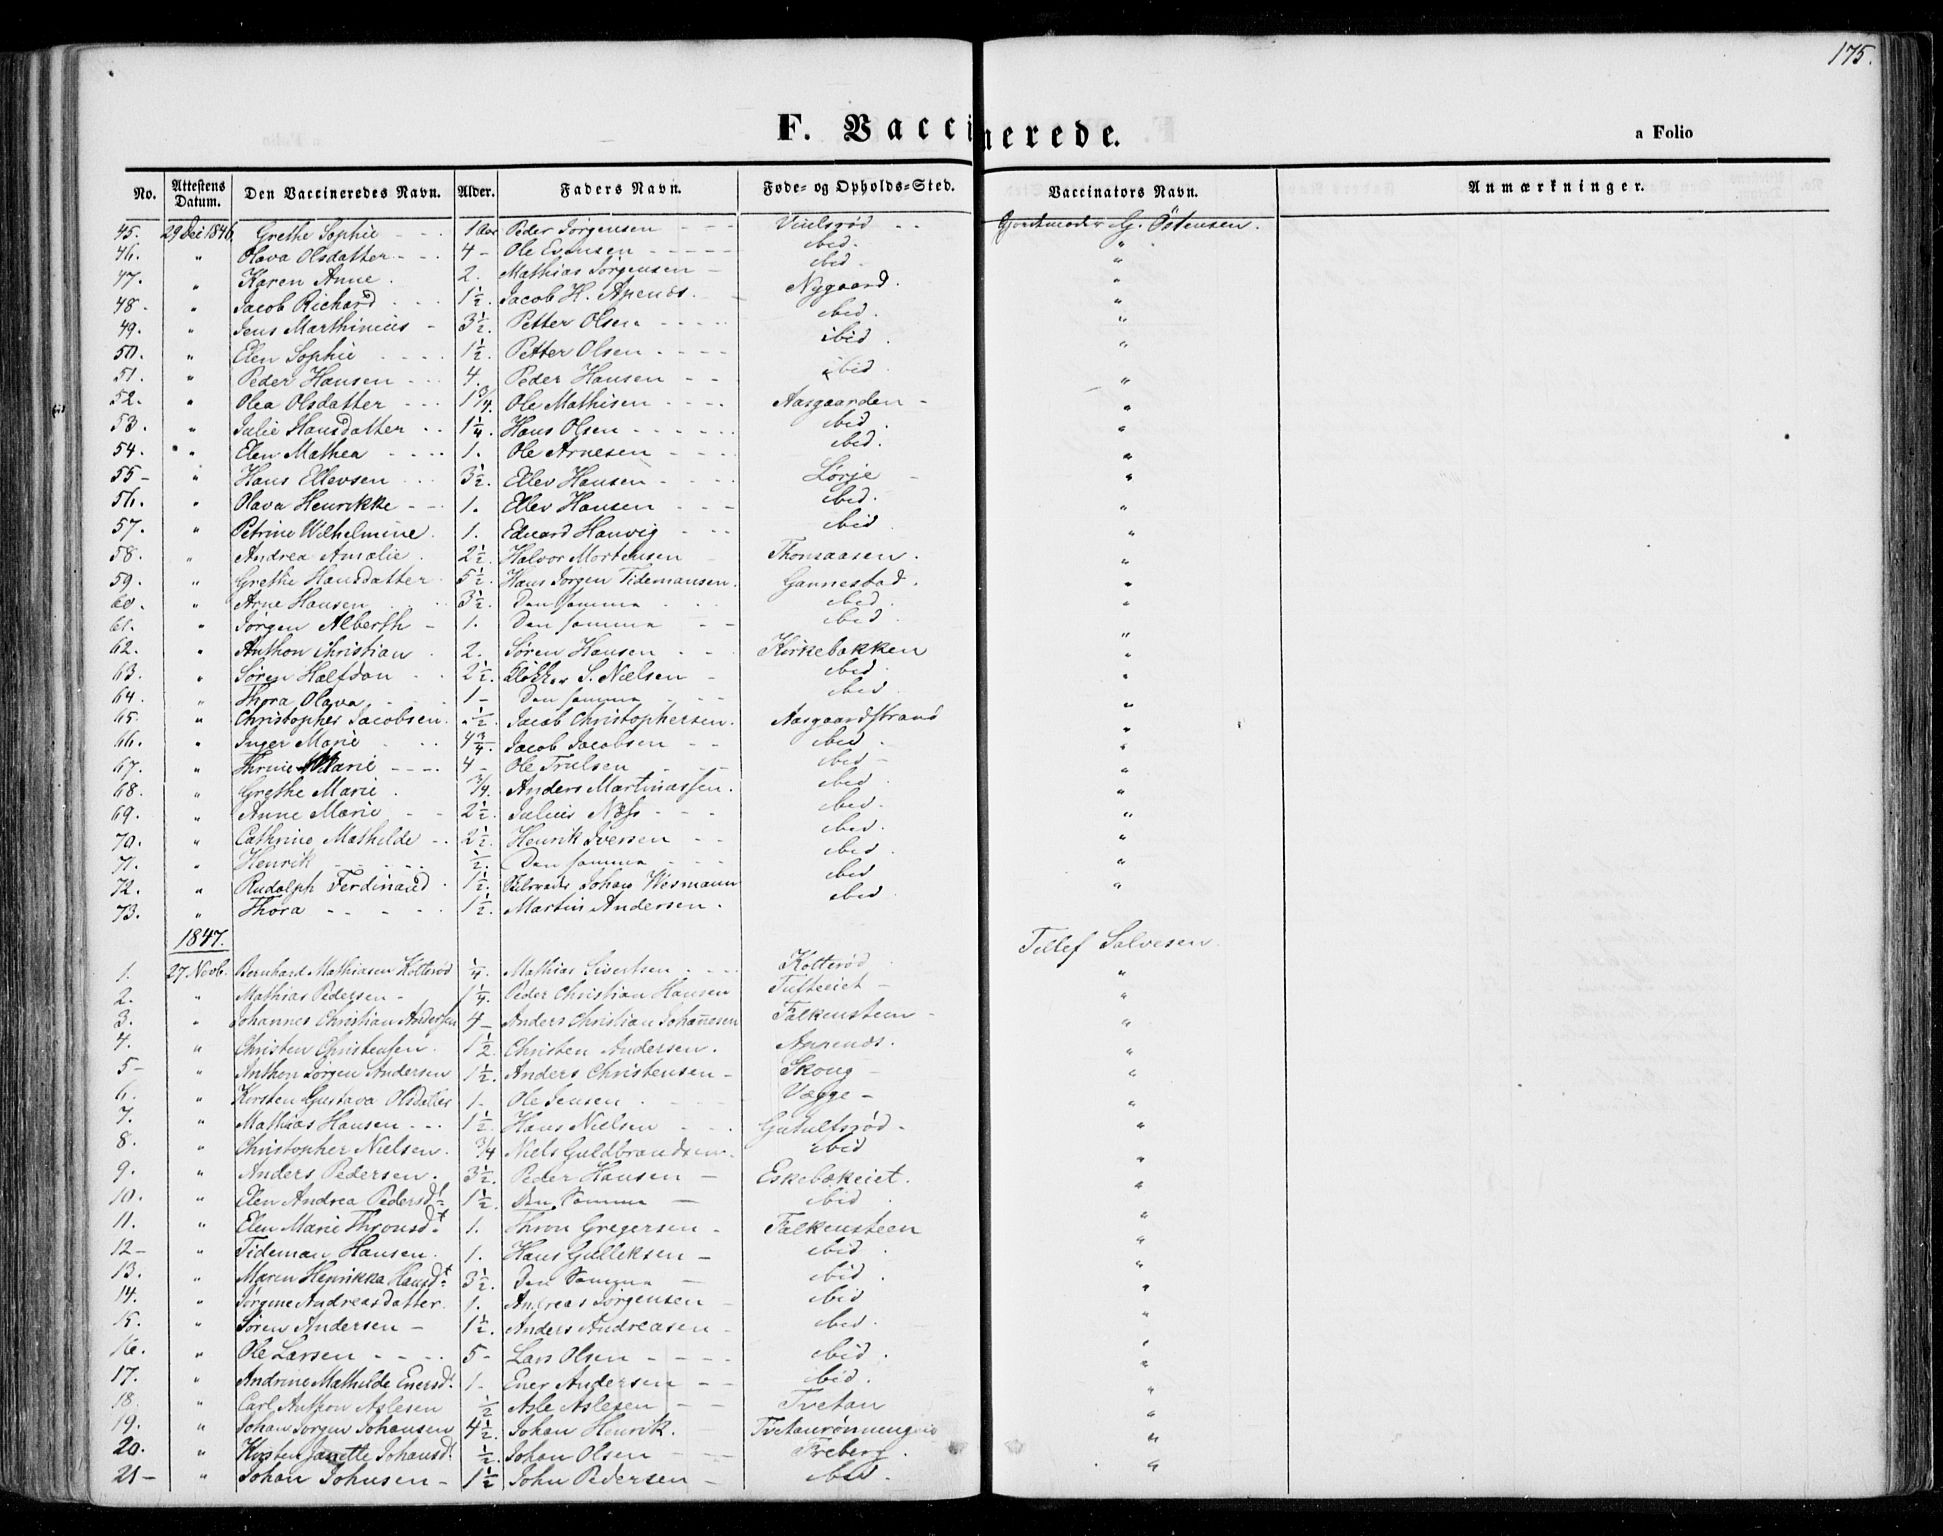 175.
F. Vaccinerede.
a Folio
No. Attestens Datum. Den Vaccineredes Navn. Alder. Faders Navn. Føde- og Opholds-Sted. Vaccinators Navn. Anmærkninger.
45. 29 Dec 1846. Grethe Sophie - - - 1 Aar Peder Jørgensen - - - - - Gjordemoder G. Östensen.
46. " Olava Olsdatter - - - 4 - Ole Evensen - - - - ibid. "
47. " Karen Anne. 2. Mathias Jørgensen - ibid - "
48 - " Jacob Richard - - - 1½. Jacob H. Apenæs. - Nygaard. "
49. " Jens Marthinius - 3½. Petter Olsen - - - - ibid. "
50. " Elen Sophie - - - - 1½. Petter Olsen - - - - ibid. "
51. " Peder Hansen - - - 4. Peder Hansen - - ibid. "
52. " Olea Olsdatter - - - 1¾. Ole Mathisen - - - - Aasgaarden - "
53. " Julie Hansdatter - - 1¼. Hans Olsen - - - - - ibid. "
54. " Elen Mathea - - - - 1. Ole Arnesen - - - - ibid. "
55 - " Hans Ellevsen - - - 3½. Ellev Hansen - - - - Lørje - "
56. " Olava Henrikke - - - 1. Ellev Hansen - - - ibid. "
57. " Petrine Wilhelmine. 1. Eduard Hanvig - - - ibid. "
58. " Andrea Amalie. 2½. Halvor Mortensen - Thomaasen. "
59. " Grethe Hansdatter. 5½. Hans Jørgen Tidemansen. Gannestad. "
60. " Arne Hansen - - 3½. Den samme - - - ibid. "
61. " Jørgen Alberth - 1. Den samme - - ibid. "
62. " Anthon Christian. 2. Søren Hansen - - - Kirkebakken "
63. " Søren Halfdan - - 2½. Klokker S. Nielsen - ibid. "
64. " Thora Olava. 1 - Den samme - - - ibid. "
65. " Christopher Jacobsen. ½. Jacob Christophersen. Aasgaardstrand "
66. " Inger Marie - - 4¾. Jacob Jacobsen - - ibid. "
67. " Marie - - - - 4 - Ole Trulsen - - - ibid - "
68. " Grethe Marie. ¾. Anders Martinassen. ibid. "
69. " Anne Marie - - 2½. Julius Næss - - - ibid. "
70. " Cathrine Mathilde - - 2½. Henrik Iversen - - ibid. "
71. " Henrik - - - - - ½. Den samme - - - ibid. "
72. " Rudolph Ferdinand. 1½. Johan Wesmann ibid "
73. " Thora - - - - - 1½. Martin Andersen. ibid.
1847.
Tellef Salvesen.
1. 27 Novb. Bernhard Mathiasen Kolterød ¼. Mathias Sivertsen - - - Kolterød. "
2. " Mathias Pedersen - 1¼. Peder Christian Hansen Tufteeiet - "
3. " Johannes Christian Andersen 4 - Anders Christian Johannesen Falkensteen - "
4. " Christen Christensen. 1½ Christen Andersen. Appenæs. "
5 - " Anthon Jørgen Andersen 1½. Anders Christensen - Skoug - "
6. " Kirsten Gustava Olsdatter 1. Ole Jensen. - - Vægge - "
7. " Mathias Hansen - - - 1½. Hans Nielsen - - - Gutultsrød - "
8. " Christopher Nielsen. ¾ Niels Guldbrandsen. ibid "
9. " Anders Pedersen. 3½. Peder Hansen - Eskebækeiet. "
10. " Elen Andrea Pedersdt. 1½. Den Samme - ibid. "
11. " Elen Marie Thronsdt. 1. Thron Gregersen - Falkensteen "
12 - " Tideman Hansen. 1. Hans Gulleksen - ibid. "
13. " Maren Henrikka Hansdt. 3½. Den Samme - ibid. "
14. " Jørgine Andreasdatter. 1. Andreas Jørgensen - ibid "
15. " Søren Andersen - 1½. Anders Andreasen - ibid. "
16. " Ole Larsen - - - - 5 - Lars Olsen - - - - ibid. "
17. " Andrine Mathilde Enersdt. 1 - Ener Andersen - - ibid. "
18. " Carl Anthon Aslesen ½ Asle Aslesen - - Tvetan "
19. " Johan Jørgen Johansen 4½. Johan Henrik. "
20. " Kirsten Janette Johansdt. ½. Johan Olsen - - - Freberg. "
21 - " Johan Johnsen - 1½ John Pedersen - ibid. "